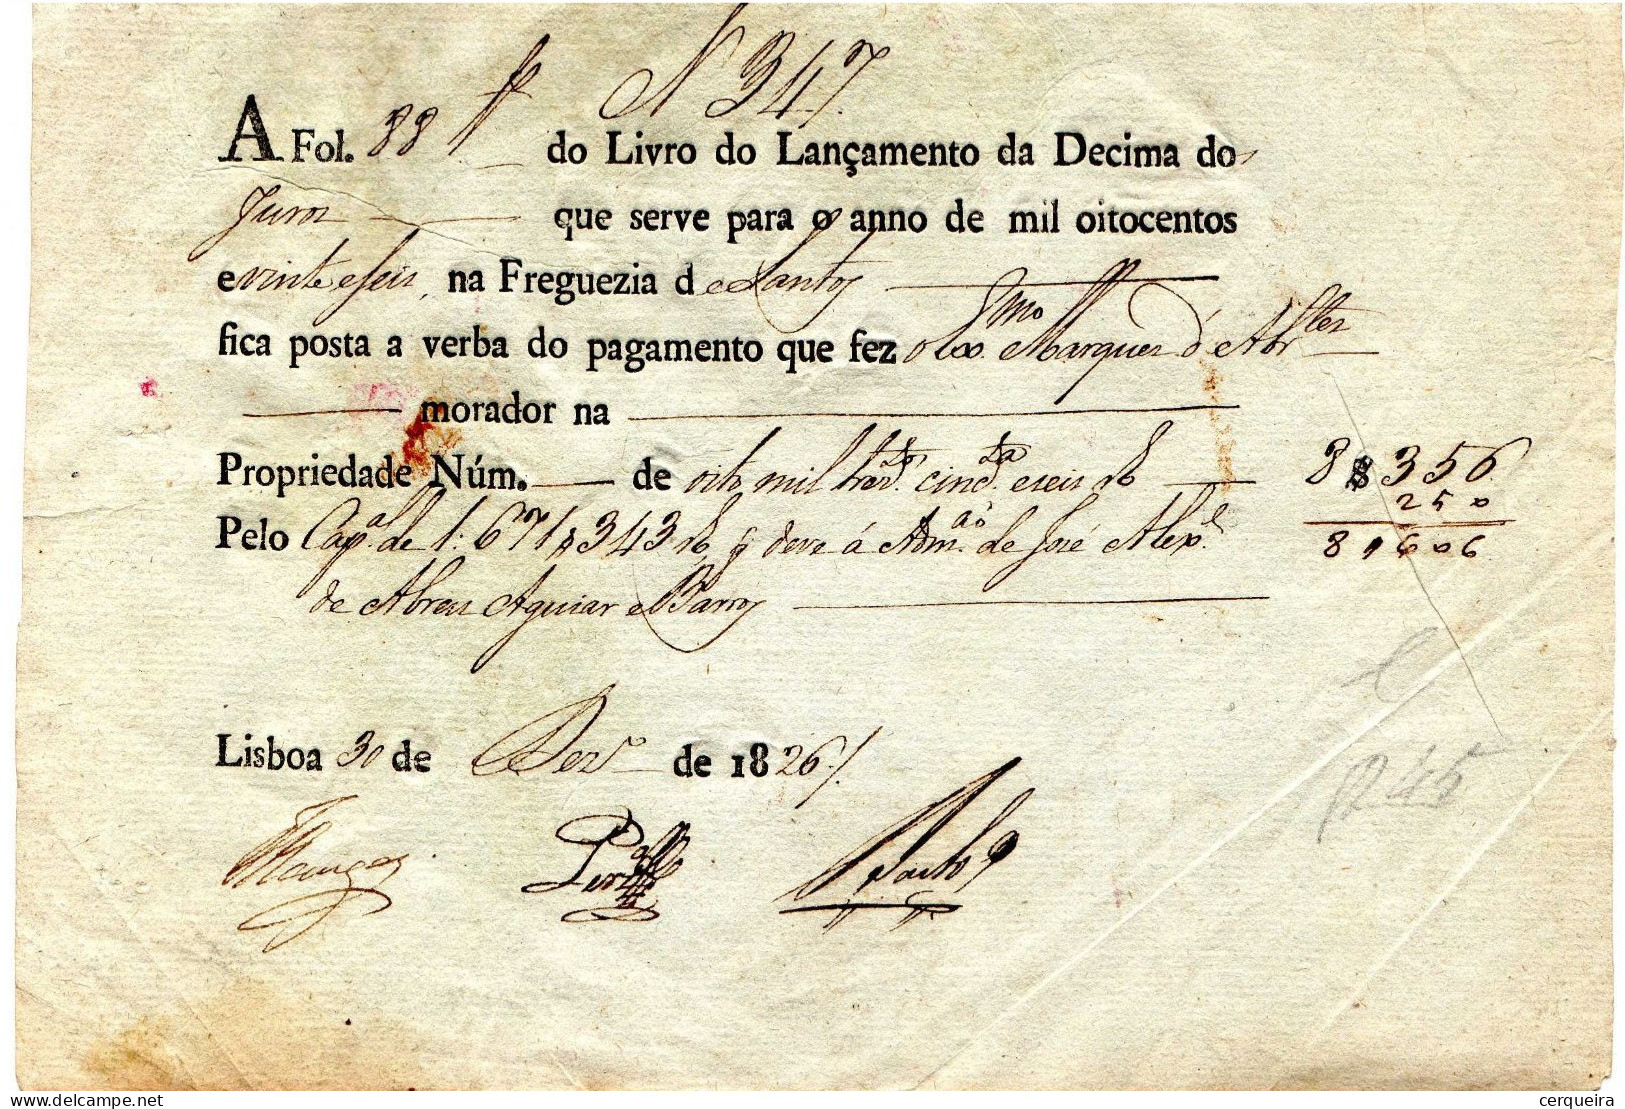 N 347
A Fol. 88 do Livro do Lançamento da Decima do
Juros que serve para o anno de mil oitocentos
e vinte e seis, na Freguezia de Santos
fica posta a verba do pagamento que fez o Exmo. Marquez d'Abrtes
morador na
Propriedade Núm. de oito mil trezos. cincta. e seis rs 8$356
250
Pelo Capal. de 1:671$343 rs q deve á Admao. de José Alexe. 8$606
de Abreu Aguiar e Barros
Lisboa 30 de Dezro de 1826
delcampe.net
cerqueira